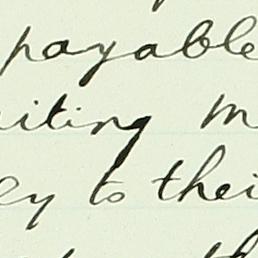 payable
iting m
ey to thei